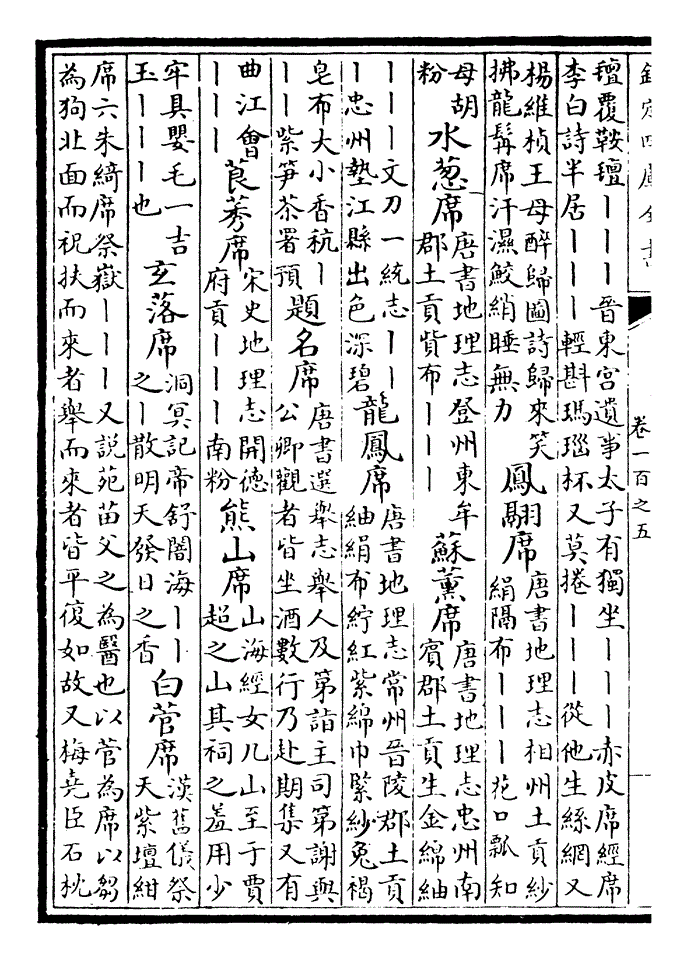 欽定四庫全書
卷一百之五
氊覆鞍氊｜｜｜晉東宮遺事太子有獨坐｜｜｜赤皮席經席
李白詩半居｜｜｜輕斟瑪瑙杯又莫捲｜｜｜從他生絲網又
楊維楨王母醉歸圖詩歸來笑
拂龍髯席汗濕鮫綃睡無力
鳳翮席
唐書地理志相州土貢紗
絹隔布｜｜｜苑口瓢知
母胡
粉
水葱席
唐書地理志登州東牟
郡土貢貲布｜｜｜
蘇薰席
唐書地理志忠州南
賓郡土貢生金綿紬
｜｜｜文刀一統志｜｜
｜忠州墊江縣出色深碧
龍鳳席
唐書地理志常州晉陵郡土貢
紬絹布紵紅紫綿巾緊紗兔褐
皂布大小香秔｜
｜｜紫笋茶署預
題名席
唐書選舉志舉人及第詣主司第謝與
公卿觀者皆坐酒數行乃赴期集又有
曲江會
｜｜｜
莨莠席
宋史地理志開德
府貢｜｜｜南粉
熊山席
山海經女几山至于賈
超之山其祠之羞用少
牢具嬰毛一吉
玉｜｜｜也
玄落席
洞冥記帝舒闇海｜｜
之｜散明天發日之香
白菅席
漢舊儀祭
天紫壇紺
席六朱綺席祭嶽｜｜｜又說苑苗父之為醫也以菅為席以芻
為狗北面而祝扶而來者舉而來者皆平復如故又梅堯臣石枕